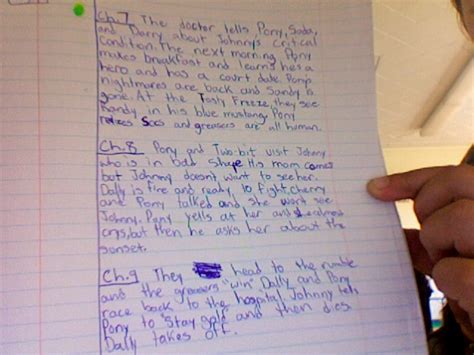 Ch.7 The doctor tells Pony, Soda,
and Darry about Johnny's critical
condition. The next morning Pony
makes breakfast and learns hes a
hero and has a court date. Pony's
nightmares are back and Sandy is
gone. At the Tasty Freeze, they see
Randy in his blue mustang. Pony
Socs and greasers are all human.
Ch.8 Pony and Two-bit visit Johnny
who is in bad Shape. His mom comes
but Johnny doesn't want to see her.
Dally is fine and ready to fight. Cherry
and Pony talked and, she wont see
Johnny. Pony yells at her and she almost
crys, but then he asks her about the
sunset.
Ch.9 They head to the rumble
and the greasers "win" Dally and Pony
race back to the hospital. Johnny tells
Pony to "Stay gold" and then dies
Dally takes off.